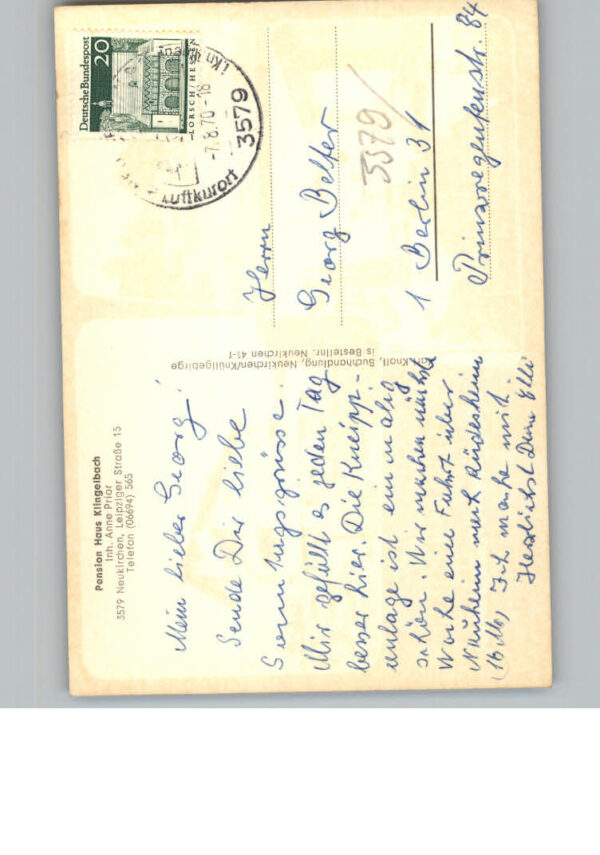 Pension Haus Klingelbach
Inh. Anne Prior
3579 Neukirchen, Leipziger Straße 15
Telefon (06694) 565
Mein lieber Georg!
Sende Dir liebe
Mir gefällt es jeden Tag
besser hier. Die Kneipp-
anlage ist einmalig
schön. Wir machen nächste
Woche eine Fahrt über
Nauheim nach Rüdesheim
(16 M.) Ich mache mit.
Herzlichst Deine Elli
Knoll, Buchhandlung, Neukirchen/Knüllgebirge
Bestellnr. Neukirchen 41-f
Deutsche Bundespost
20
LORSCH/HESSEN
-7.8.70-18
3579
Luftkurort
Herrn
Georg Belter
3579/
1 Berlin 31
Prinzregentenstr. 84